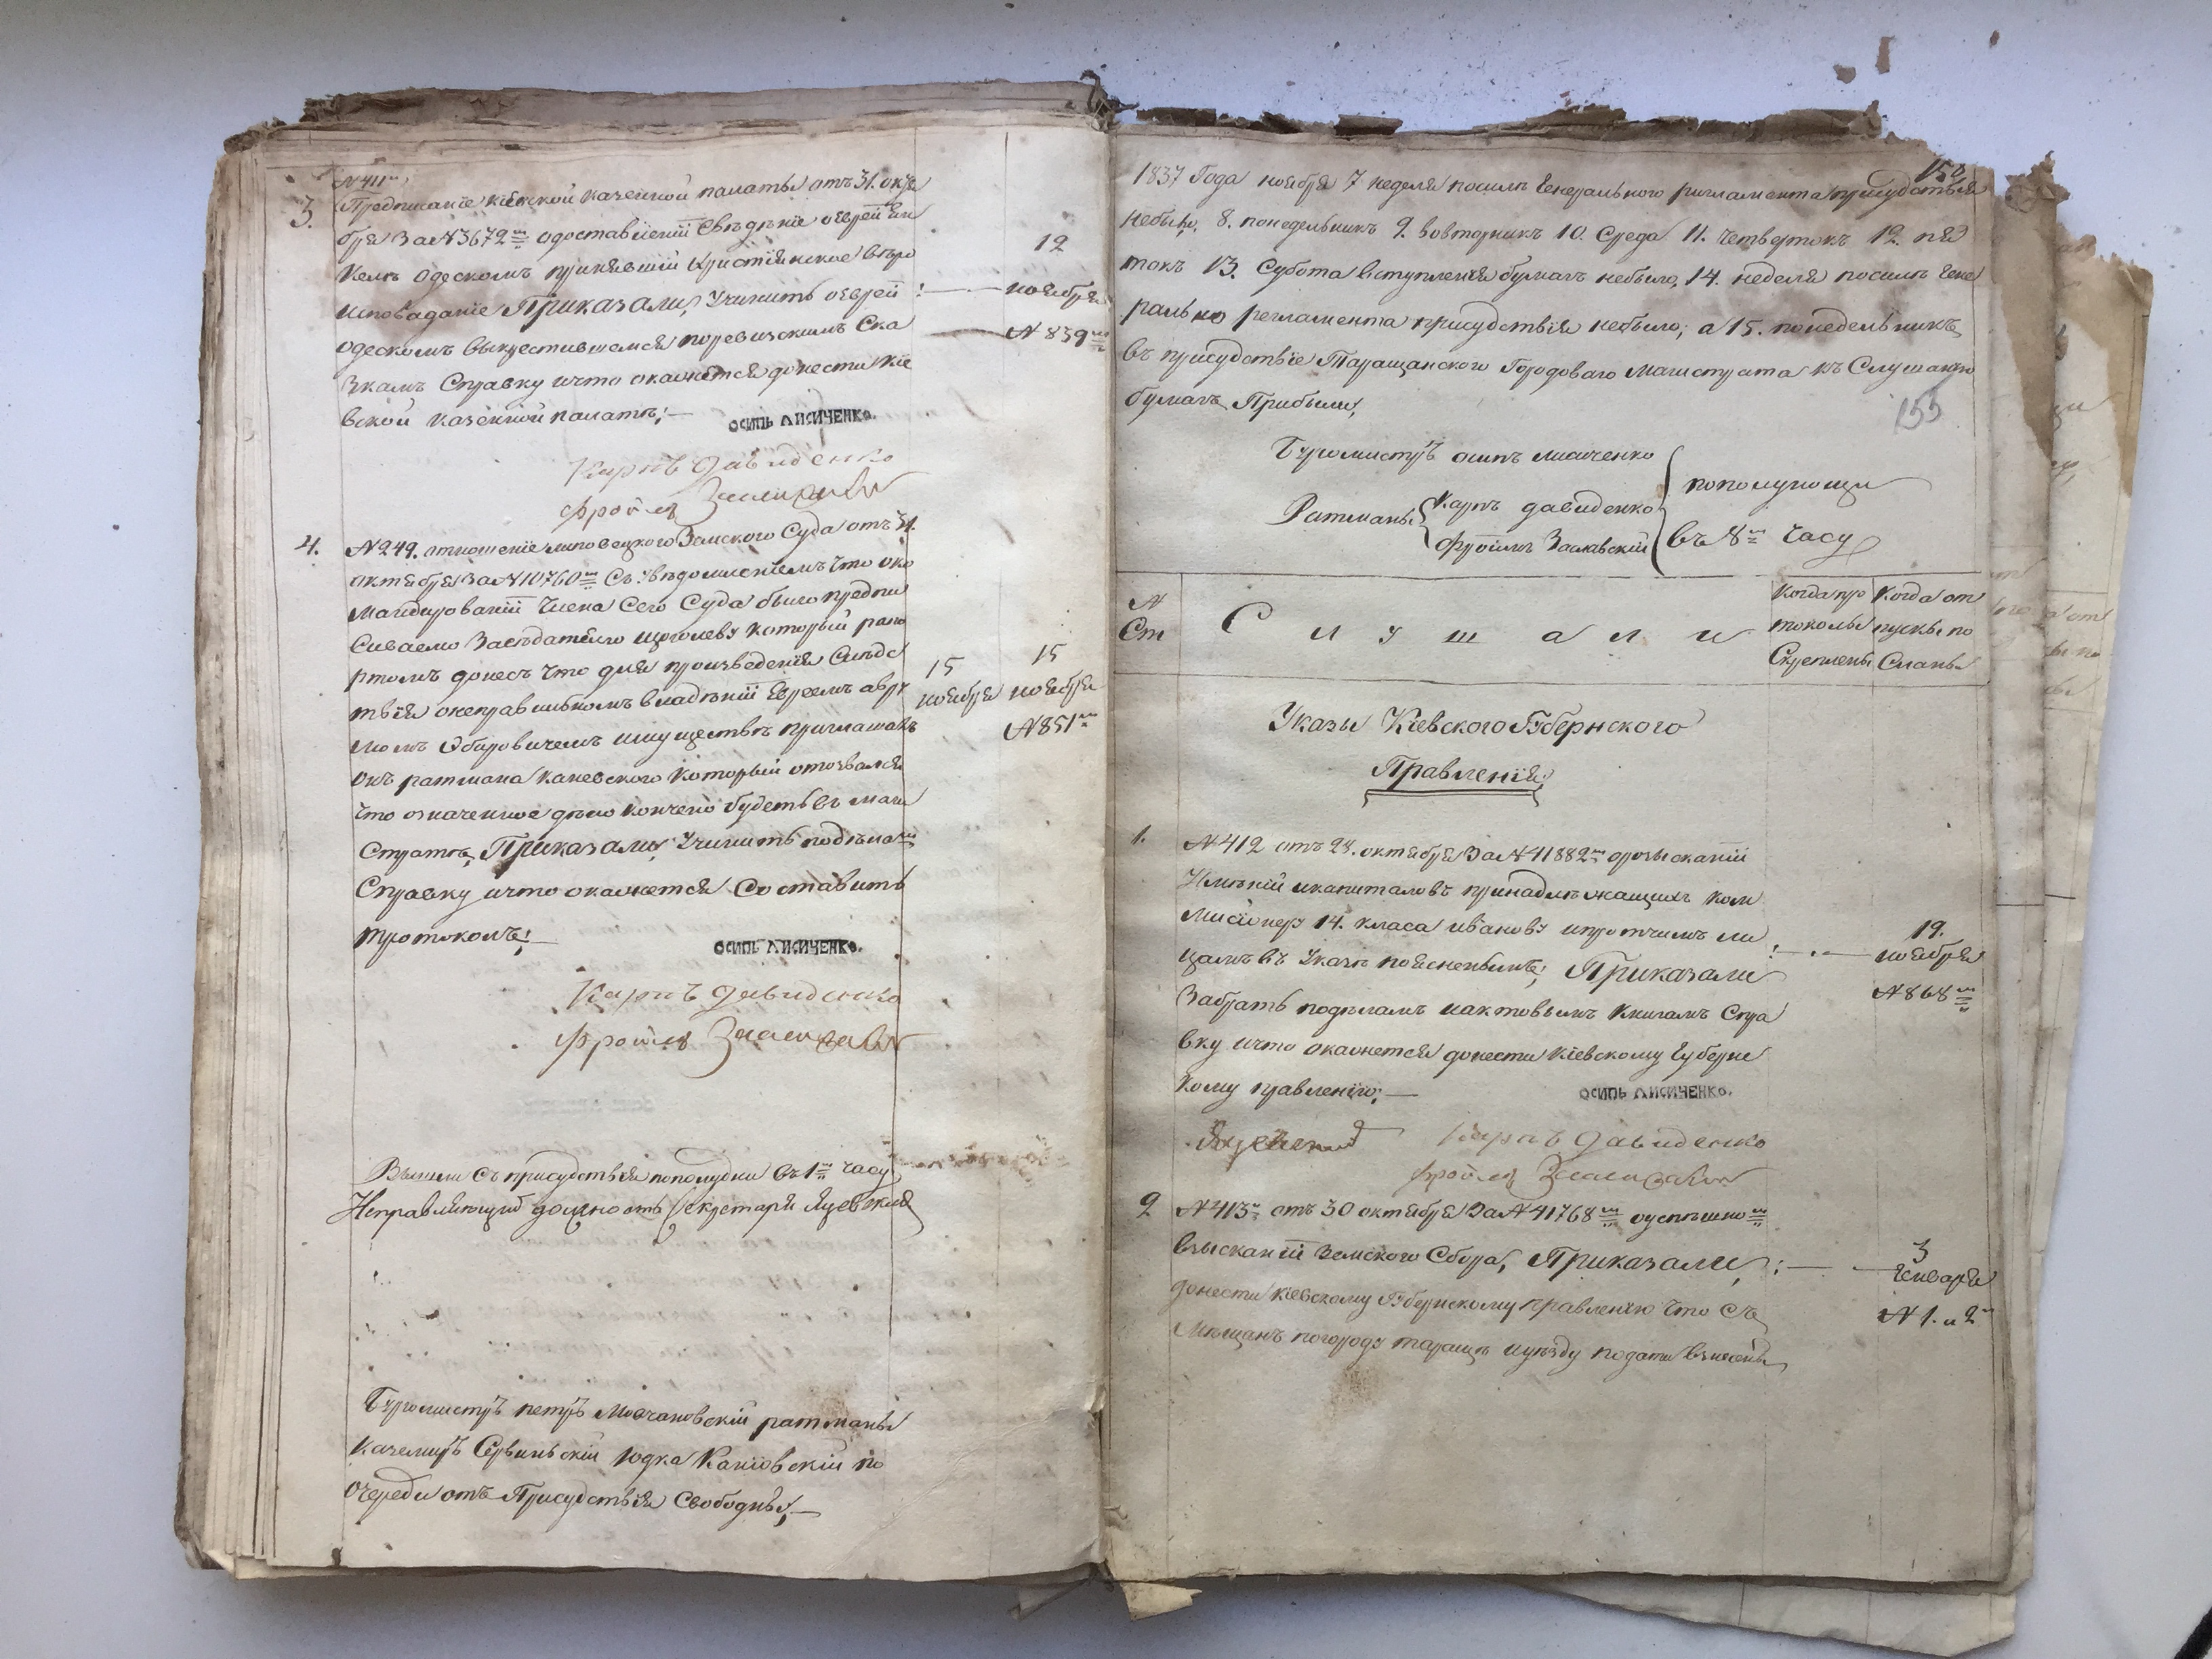 N 411
3. Предписаніе кіевской казенной палаты отъ 31. октя
бря За N 3672 одоставленіи Свѣдѣніе оеврей Ен
келѣ одескомъ принявшій Христіянское вѣро
исповаданіе Приказали, Учинить оеврей
одескомъ выкрестившемся поревизскимъ Ска
зкамъ Справку ичто окажется донести кіе
вской казенной палатѣ;—
12
ноября
N 839
ОСИПЬ ЛИСИЧЕНКО.
Карпъ Давиденко
Фроим Заславски
4. N 249. отношеніе липовецкого Земского Суда отъ 31.
октября За N 10760 Съ Увѣдомленіемъ что око
мандированіи Члена Сего Суда было предпи
Сиваемо Засѣдателю щоголеву который рапо
ртомъ донесъ что для произведенія Слѣдс
твія онеправильномъ владѣніи Евреемъ авру
момъ имуществѣ приглашалъ
онъ ратмана каневского который отозвался
что означенное дѣло кончено будетъ въ маги
Стратѣ, Приказали, Учинить подѣламъ
Справку ичто окажется Составить
протоколъ;—
15
ноября
15
ноября
N 851
ОСИПЬ ЛИСИЧЕНКО.
Карпъ Давиденко
Фроим Заславски
Вышли съ присудствія пополудни въ 1 часу
Исправляющій должность Секретаря Яцевкій
Бургомистръ петръ Молчановскій ратманы
качемиръ Юдка Каніовскій по
очереди отъ Присудствія Свободны,—
150
1837 Года ноября 7 неделя посилѣ Генерального регламента присудствія
небыло, 8. понедельникъ 9. вовторникъ 10. Среда 11. Четвертокъ 12. пя
токъ 13. Субота вступленія бумагъ небыло, 14. неделя посилѣ Гене
рально регламента присудствія небыло, а 15. понедельникъ
въ присудствіе Таращанского Городоваго Магистрата къ Слушанію
бумагъ Прибыли,
155
Бургомистръ осипъ лисиченко
Ратманы карпъ давиденко
Фроимъ Заславскій
пополунощи
въ 8 часу
N
Ст
Слушали
Когда про
токолы
Скреплены
Когда от
пуски по
Сланы
Указы Кіевского Губернского
Правленія;
1. N 412 отъ 28. октября За N 41882 орозысканіи
Имѣній икапиталовъ принадлежащихъ ком
Мисіонеру 14. класа иванову ипротчимъ ли
цамъ въ Указѣ поясненымъ; Приказали
Забрать подѣламъ иактовымъ книгамъ Спра
вку ичто окажется донести кіевскому Губерне
кому правленію;—
19.
ноября
N 868
ОСИПЬ ЛИСИЧЕНКО.
Карпъ Давиденко
Фроим Заславски
2 N 413 отъ 30 октября За N 41768 оуспѣшномъ
взысканіи Земского Сбора, Приказали,
донести кіевскому Губернскому правленію что Съ
Мѣщанъ погороду таращѣ иуезду подати взнесены
3
Генваря
N 1. и 2